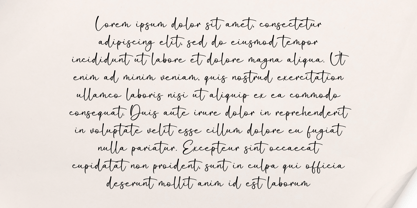 Lorem ipsum dolor sit amet, consectetur
adipiscing elit, sed do eiusmod tempor
incididunt ut labore et dolore magna aliqua. Ut
enim ad minim veniam, quis nostrud exercitation
ullamco laboris nisi ut aliquip ex ea commodo
consequat. Duis aute irure dolor in reprehenderit
in voluptate velit esse cillum dolore eu fugiat
nulla pariatur. Excepteur sint occaecat
cupidatat non proident, sunt in culpa qui officia
deserunt mollit anim id est laborum